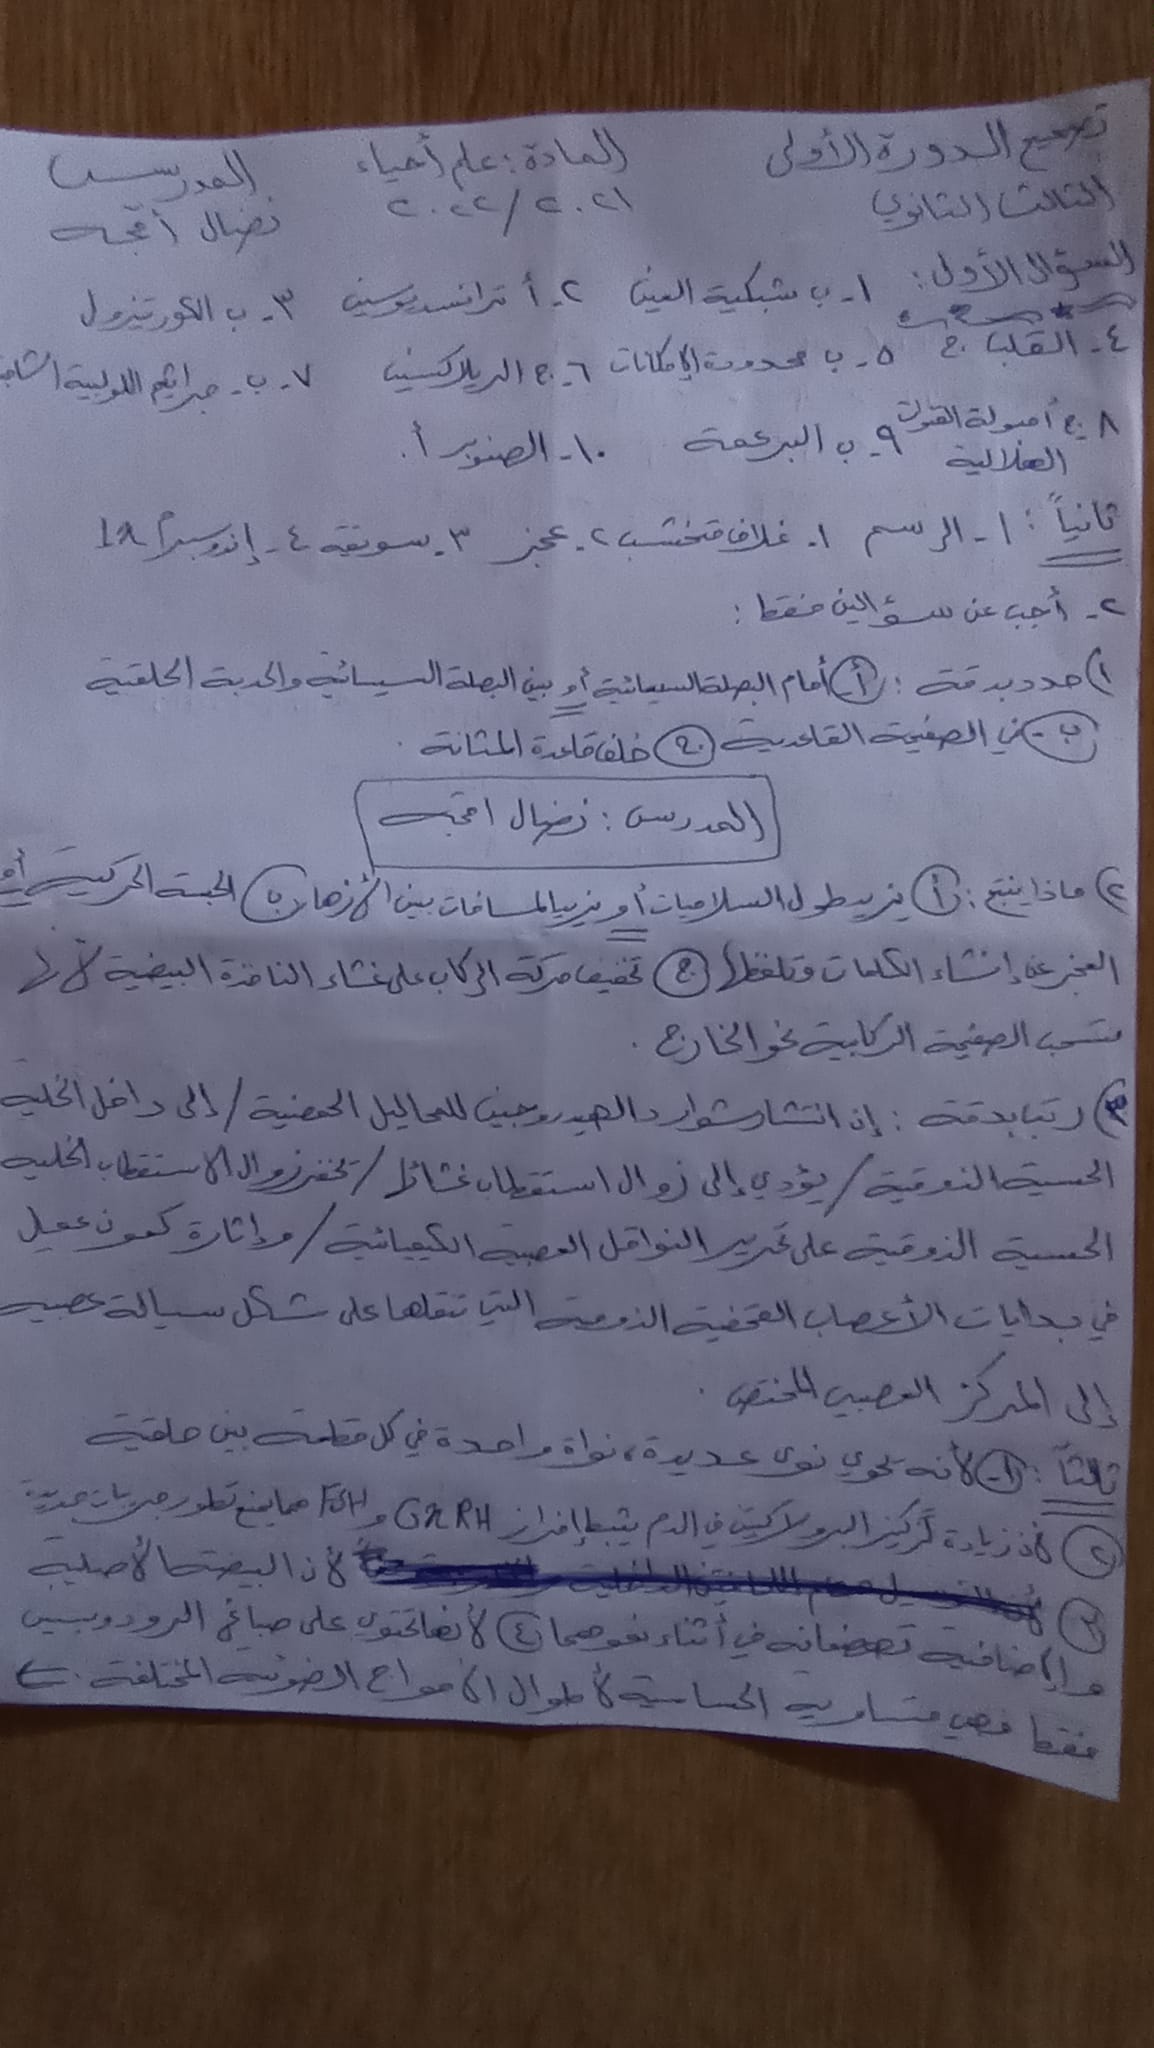 تصحيح الدورة الأولى المادة: علم أحياء المدرس
الثالث الثانوي ٢٠٢١/٢٠٢٢ نضال
السؤال الأول: ١- ب شبكية العين ٢- أ ترانسديوسين ٣- ب الكورتيزول
٤- القلب ج ٥- ب محدودة الإمكانات ٦- ج الريلاكسين ٧- ب- جراثيم اللولبية الشاحبة
٨- ج أمبولة القنوات ٩- ب البرعمة ١٠- الصنوبر أ.
الهلالية
ثانياً: ١- الرسم ١- غلاف متخشب ٢- عجز ٣- سويقة ٤- إندوسبرم
٢- أجب عن سؤالين فقط:
١) حدد بدقة: أ- أمام البصلة السيسائية أو بين البصلة السيسائية والحدبة الحلقية
ب- في الصفيحة القاعدية ج- خلف قاعدة المثانة.
المدرس: نضال
٢) ماذا ينتج: أ يزيد طول السلاميات أو يزيد المسافات بين الأزهار ب الحبسة الحركية أو
العجز عن إنشاء الكلمات وتلفظها ج تخفيف حركة الركاب على غشاء النافذة البيضية لأنها
تسحب الصفيحة الركابية نحو الخارج.
٣) رتب بدقة: إن انتشار شوارد الهيدروجين للمحاليل الحمضية / إلى داخل الخلية
الحسية الذوقية / يؤدي إلى زوال استقطاب غشائها / تحفز زوال الاستقطاب الخلية
الحسية الذوقية على تحرير النواقل العصبية الكيميائية / وإثارة كمون عمل
في بدايات الأعصاب القحفية الذوقية التي تنقلها على شكل سيالة عصبية
إلى المركز العصبي المختص.
ثالثاً: ١- لأنه يحوي نوى عديدة، نواة واحدة في كل قطعة بين حلقية
٢ لأن زيادة تركيز البرولاكتين في الدم يثبط إفراز GnRH و FSH مما يمنع تطور جريبات جديدة
٣ لأن البيضة الأصلية
والإضافية تهضمانه في أثناء نموهما ٤ لأنها تحتوي على صباغ الرودوبسين
فقط فهي متساوية الحساسية لأطوال الأمواج الضوئية المختلفة. ←